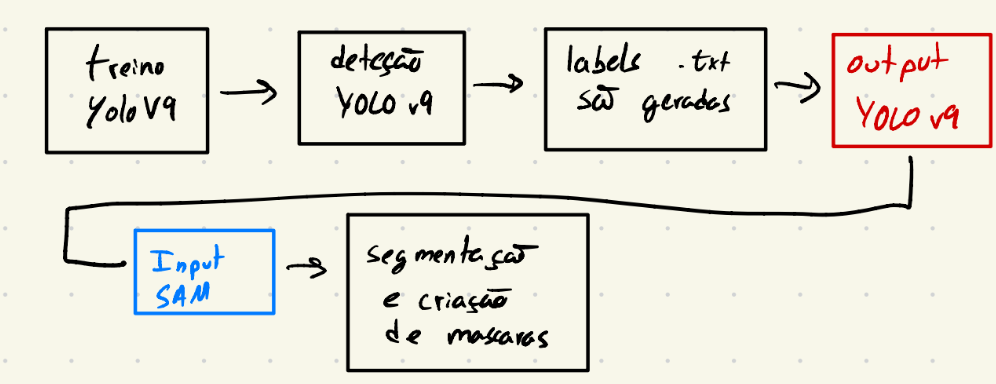 treino
Yolo V9
deteção
YOLO v9
labels .txt
são geradas
output
YOLO v9
Input
SAM
segmentação
e criação
de mascaras